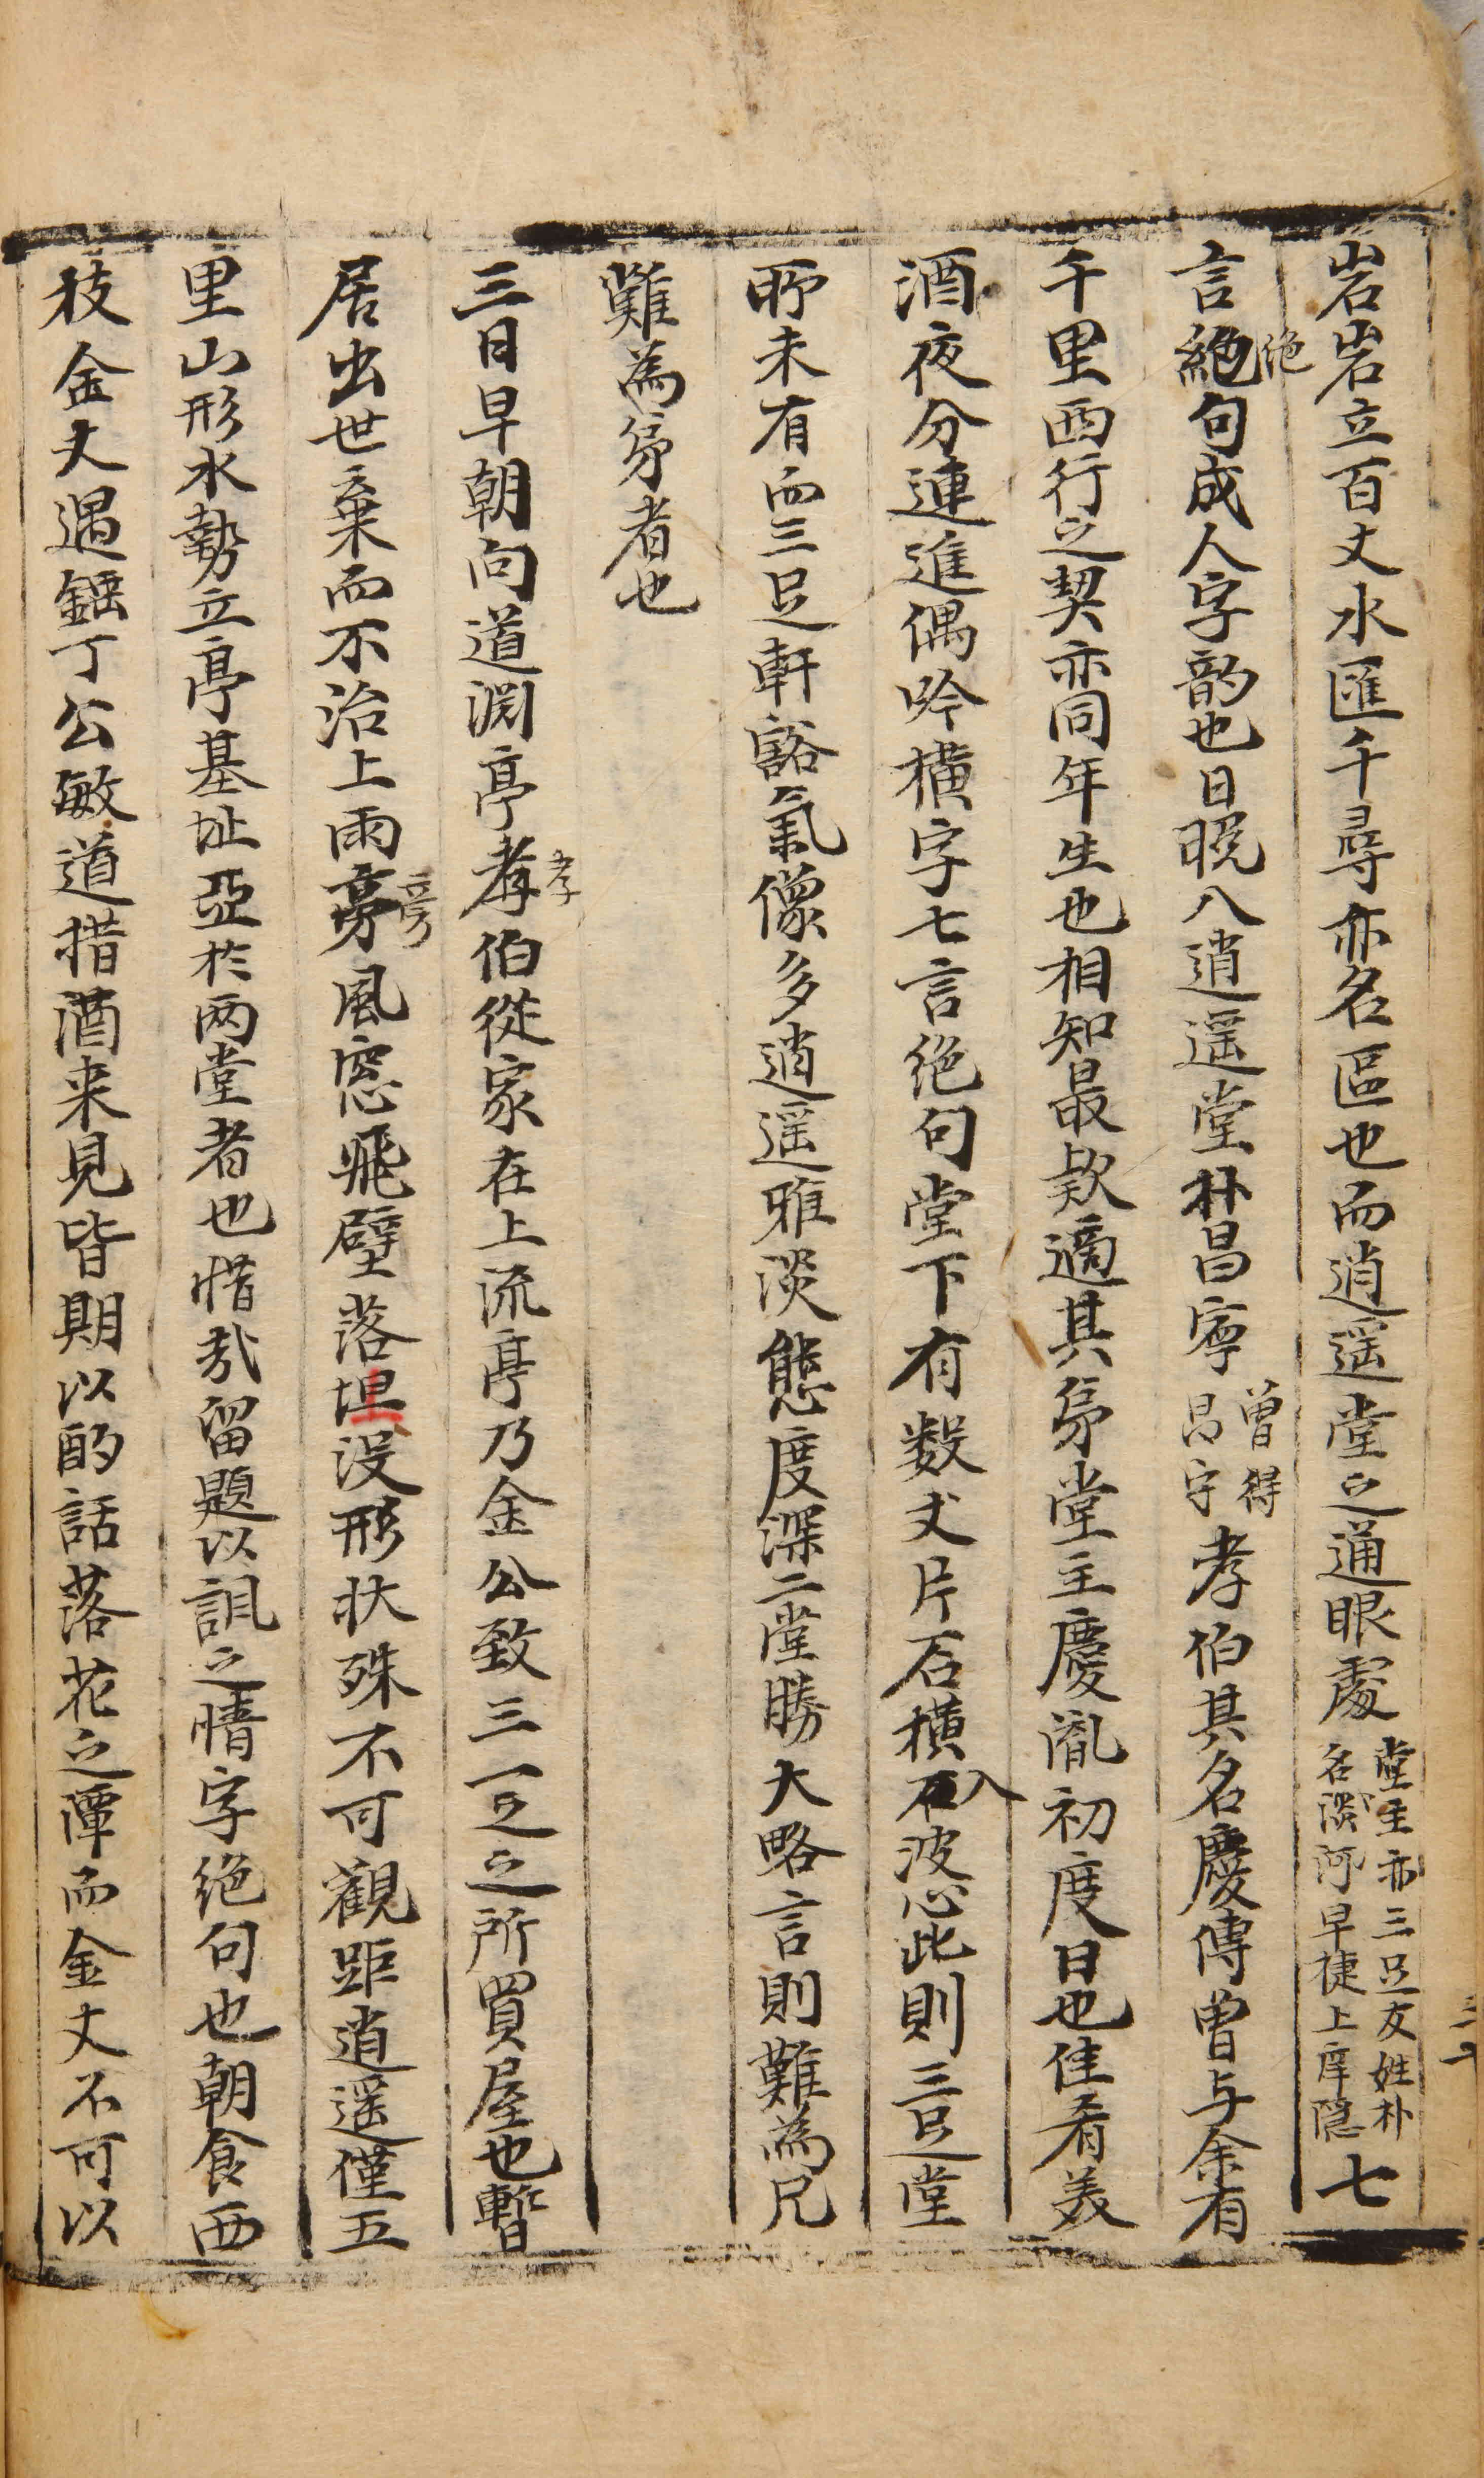 岩岩立百丈水匯千尋亦名區也而逍遥堂之通眼處堂主亦三足友姓朴名淡河早捷上庠隐七
言絶句成人字韵也日晩八逍遥堂朴昌寧曾得昌守孝伯其名慶傳曾与余有
絶
千里西行之契亦同年生也相知最欵適其弟堂主慶胤初度日也佳肴美
酒夜分連進偶吟橫字七言绝句堂下有数丈片石橫入波心此則三足堂
所未有而三足軒豁氣像多逍遥雅淡態度深二堂勝大略言則難為兄
難為弟者也
三日早朝向道渊亭孝伯從家在上流亭乃金公致三一足之所買屋也暫
孝
居出世棄而不治上雨旁風窓飛壁落坦没形状殊不可觀距逍遥僅五
旁
里山形水勢立亭基址亞於两堂者也惜哉留題以訊之情字绝句也朝食西
枝金丈遇鉦丁公敏道措酒来見皆期以酌話落花之潭而金丈不可以
三十